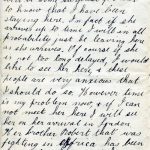 to know that I have been
staying here. In fact if she
arrives up to time I will in all
probability just be leaving
as she arrives. Of course if she
is not too long delayed, I would
like to see her here, & these
people are very anxious that
I should do so. However time
is my problem now, & if I can
not meet her here I will see
her on arrival in London.
Her brother Robert that was
fighting in Africa has been